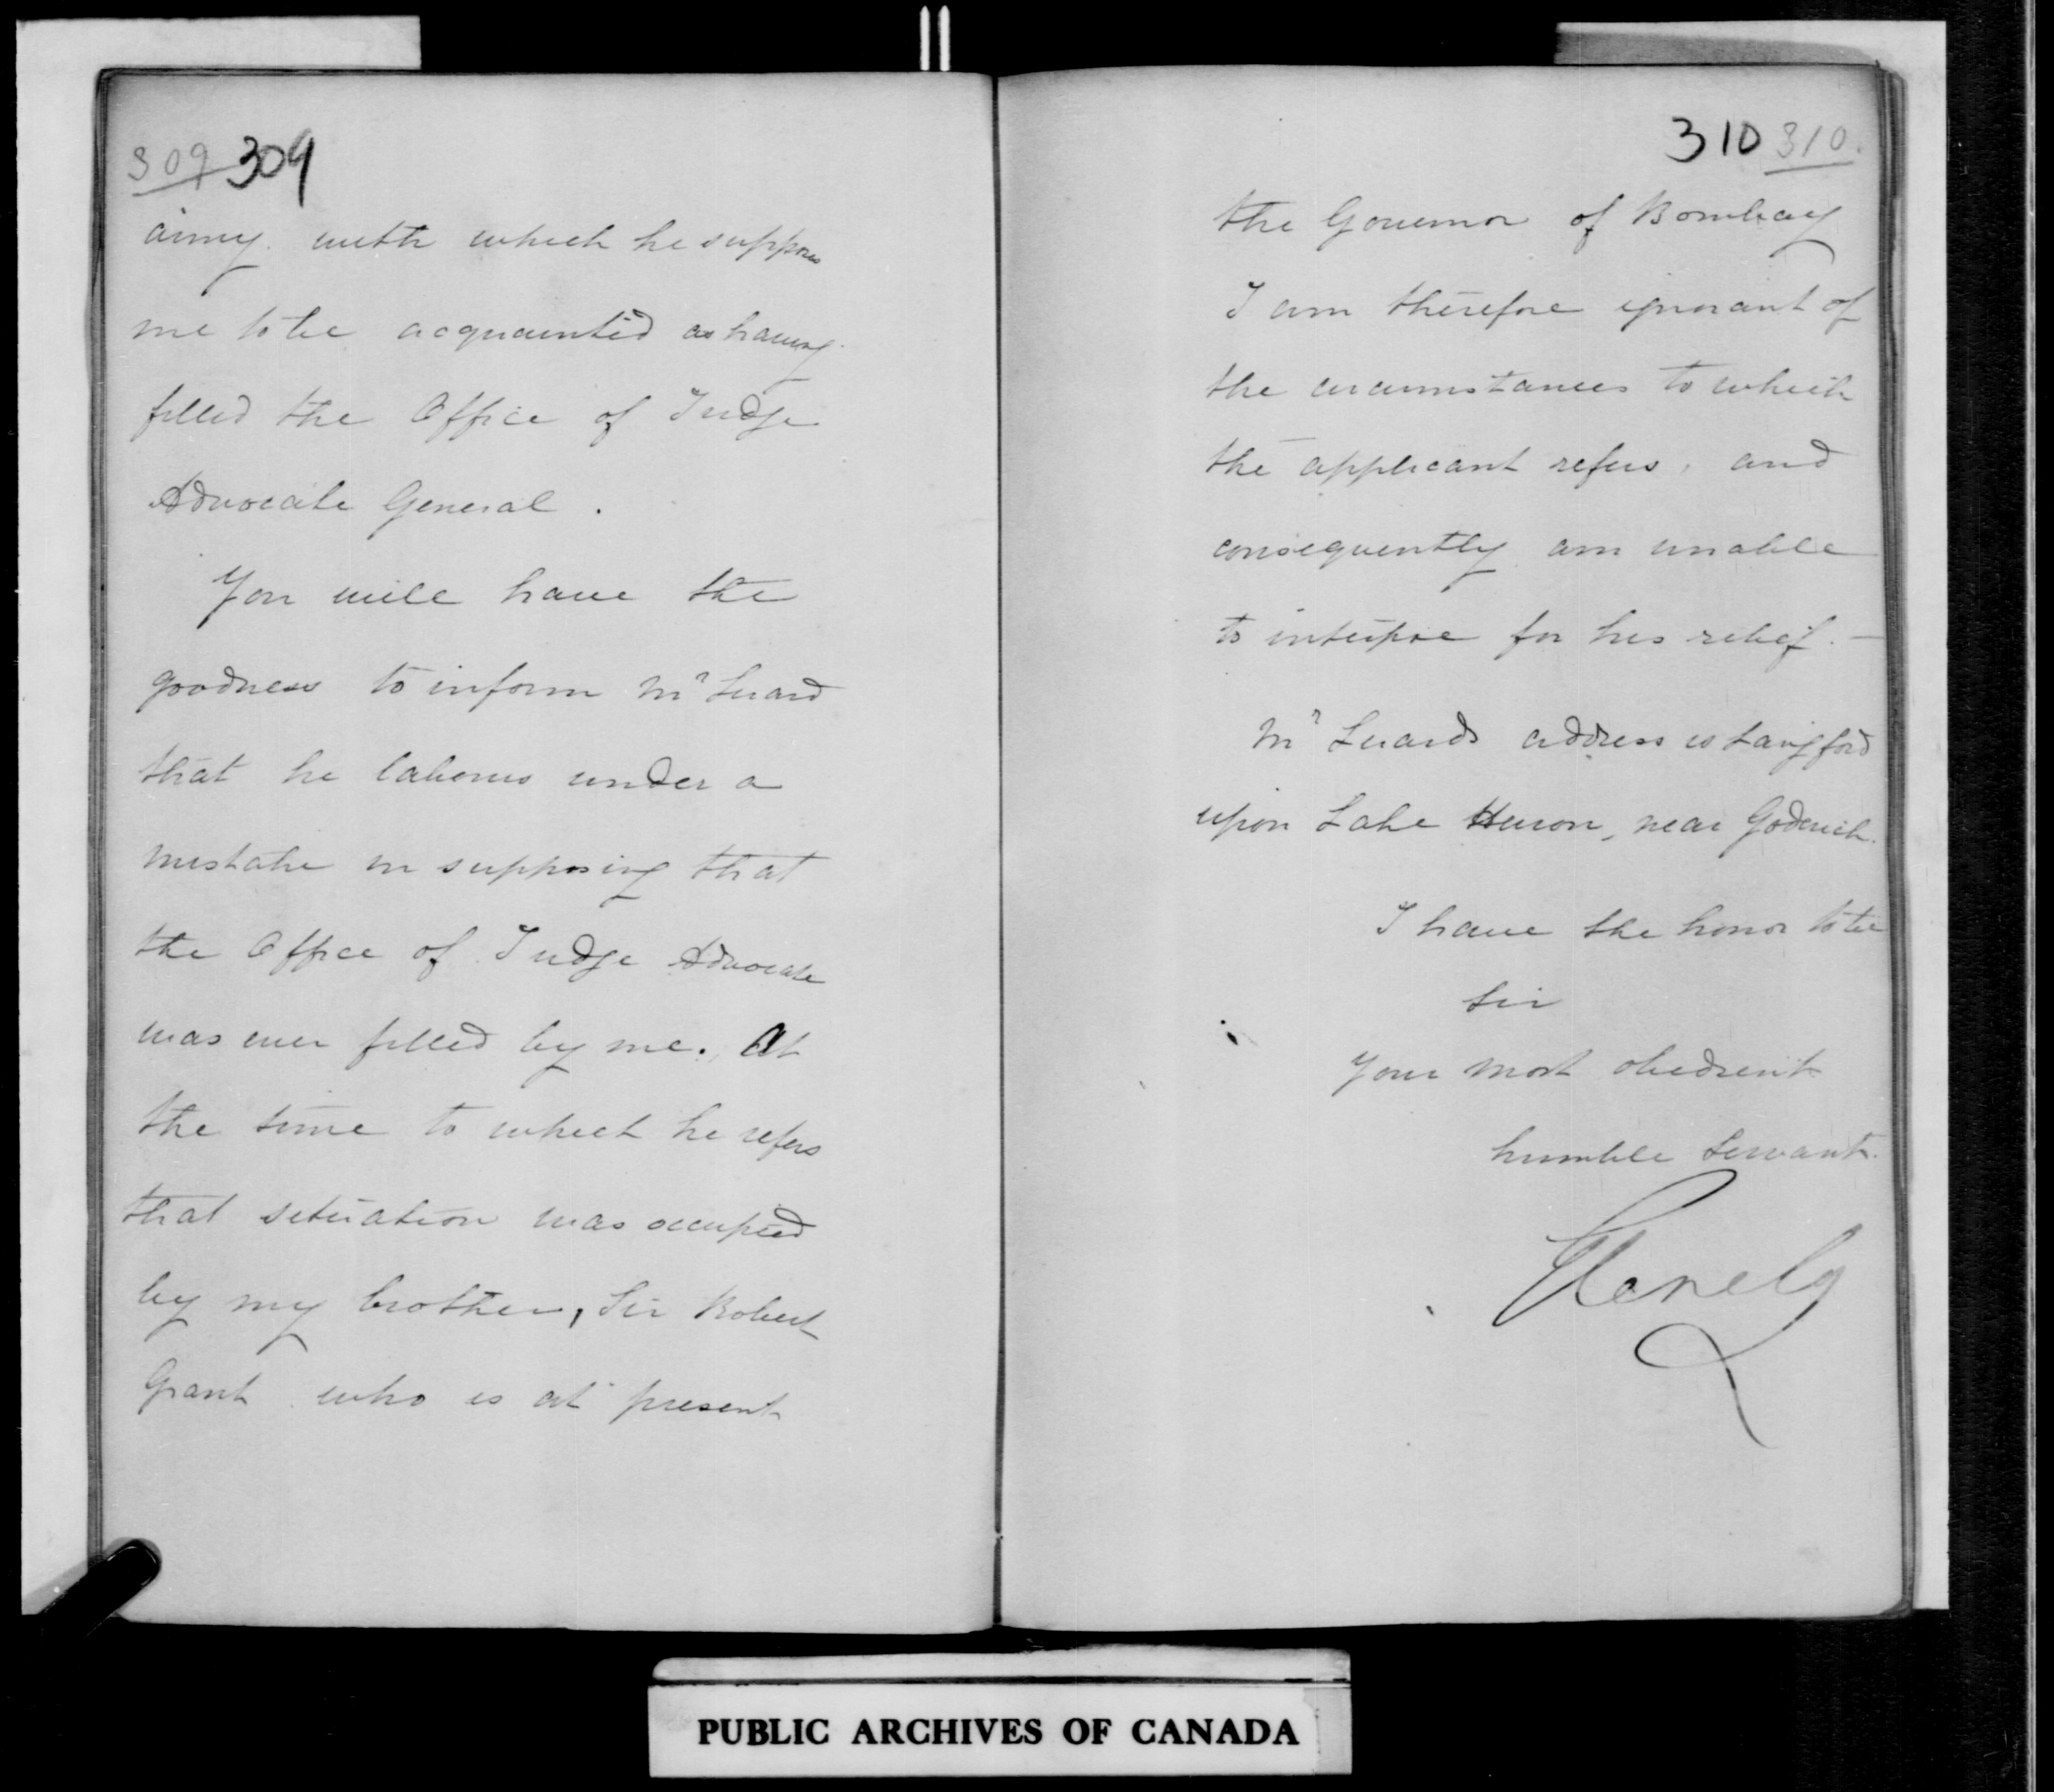 309 309
army with which he supposes
me to be acquainted as having
filled the Office of Judge
Advocate General.
You will have the
goodness to inform Mr Luard
that he labours under a
mistake in supposing that
the Office of Judge Advocate
was ever filled by me. At
the time to which he refers
that situation was occupied
by my brother, Sir Robert
Grant who is at present
310 310.
the Governor of Bombay
I am therefore ignorant of
the circumstances to which
the applicant refers, and
consequently am unable
to interpose for his relief. —
Mr Luards address is Langford
upon Lake Huron, near Goderich.
I have the honor to be
Sir
Your most obedient
humble Servant.
Glenelg
PUBLIC ARCHIVES OF CANADA